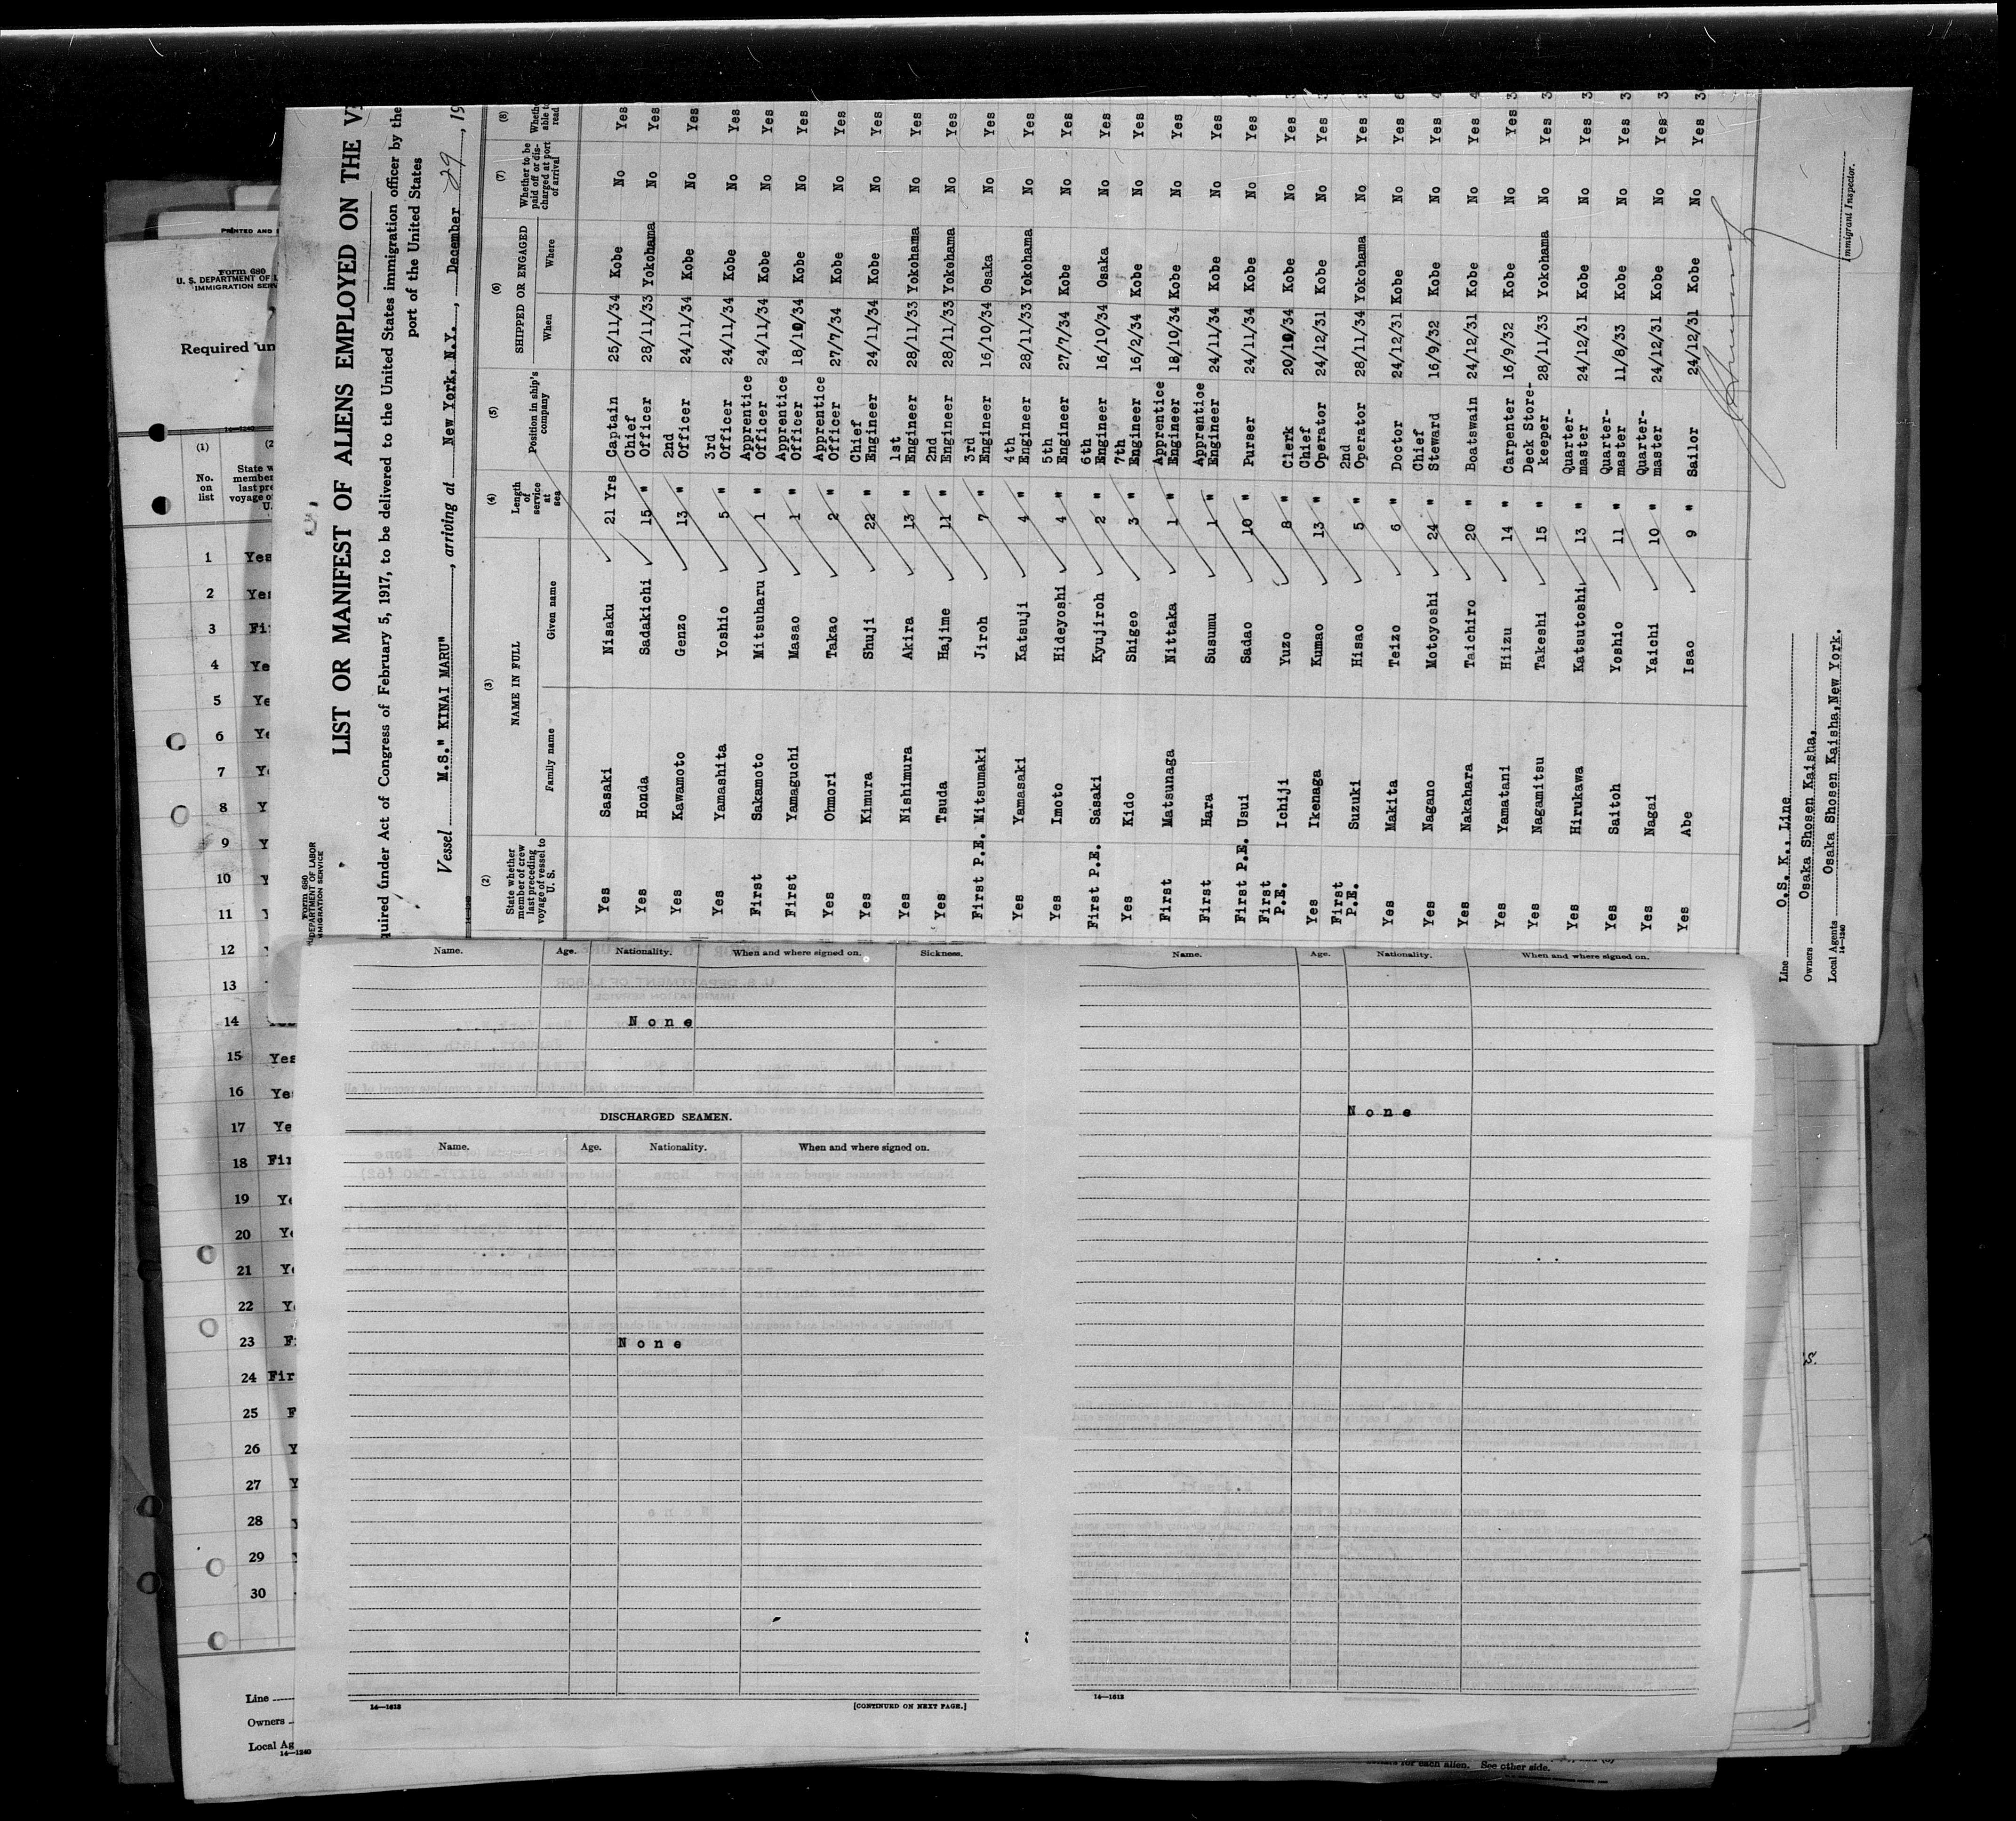 Form 680
U. S. DEPARTMENT OF LABOR
IMMIGRATION SERVICE
LIST OR MANIFEST OF ALIENS EMPLOYED ON THE
quired under Act of Congress of February 5, 1917, to be delivered to the United States immigration officer by the
port of the United States
Vessel M.S." KINAI MARU", arriving at New York, N.Y., December 29, 19
(2) (3) (4) (5) (6) (7) (8)
State whether member of crew last preceding voyage of vessel to U. S.
NAME IN FULL
Family name Given name
Length of service at sea
Position in ship's company
SHIPPED OR ENGAGED
When Where
Whether to be paid off or discharged at port of arrival
Yes Sasaki Nisaku 21 Yrs Captain 25/11/34 Kobe No Yes
Yes Honda Sadakichi 15 " Chief Officer 28/11/33 Yokohama No Yes
Yes Kawamoto Genzo 13 " 2nd Officer 24/11/34 Kobe No Yes
Yes Yamashita Yoshio 5 " 3rd Officer 24/11/34 Kobe No Yes
First Sakamoto Mitsuharu 1 " Apprentice Officer 24/11/34 Kobe No Yes
First Yamaguchi Masao 1 " Apprentice Officer 18/10/34 Kobe No Yes
Yes Ohmori Takao 2 " Apprentice Officer 27/7/34 Kobe No Yes
Yes Kimura Shuji 22 " Chief Engineer 24/11/34 Kobe No Yes
Yes Nishimura Akira 13 " 1st Engineer 28/11/33 Yokohama No Yes
Yes Tsuda Hajime 11 " 2nd Engineer 28/11/33 Yokohama No Yes
First P.E. Mitsumaki Jiroh 7 " 3rd Engineer 16/10/34 Osaka No Yes
Yes Yamasaki Katsuji 4 " 4th Engineer 28/11/33 Yokohama No Yes
Yes Imoto Hideyoshi 4 " 5th Engineer 27/7/34 Kobe No Yes
First P.E. Sasaki Kyujiroh 2 " 6th Engineer 16/10/34 Osaka No Yes
Yes Kido Shigeo 3 " 7th Engineer 16/2/34 Kobe No Yes
First Matsunaga Nittaka 1 " Apprentice Engineer 18/10/34 Kobe No Yes
First Hara Susumu 1 " Apprentice Engineer 24/11/34 Kobe No Yes
First P.E. Usui Sadao 10 " Purser 24/11/34 Kobe No Yes
First P.E. Ichiji Yuzo 8 " Clerk 20/10/34 Kobe No Yes
Yes Ikenaga Kumao 13 " Chief Operator 24/12/31 Kobe No Yes
First P.E. Suzuki Hisao 5 " 2nd Operator 28/11/34 Yokohama No Yes
Yes Makita Teizo 6 " Doctor 24/12/31 Kobe No Yes
Yes Nagano Motoyoshi 24 " Chief Steward 16/9/32 Kobe No Yes
Yes Nakahara Taichiro 20 " Boatswain 24/12/31 Kobe No Yes
Yes Yamatani Hiizu 14 " Carpenter 16/9/32 Kobe No Yes
Yes Nagamitsu Takeshi 15 " Deck Store-keeper 28/11/33 Yokohama No Yes
Yes Hirukawa Katsutoshi 13 " Quarter-master 24/12/31 Kobe No Yes
Yes Saitoh Yoshio 11 " Quarter-master 11/8/33 Kobe No Yes
Yes Nagai Yaichi 10 " Quarter-master 24/12/31 Kobe No Yes
Yes Abe Isao 9 " Sailor 24/12/31 Kobe No Yes
Immigrant Inspector.
Line O.S. K., Line
Owners Osaka Shosen Kaisha,
Local Agents Osaka Shosen Kaisha, New York.
14—1240
PRINTED AND
Form 680
U. S. DEPARTMENT OF
IMMIGRATION SERV
Required un
14—1240
(1)
No. on list
1 Yes
2 Yes
3
4 Ye
5 Ye
6
7
8 Y
9
10
11
12
13
14
15 Yes
16 Yes
17 Ye
18 Fir
19
20
21
22
23
24 Fir
25
26
27
28
29
30
Line
Owners
Local Ag
14—1240
Name. Age. Nationality. When and where signed on. Sickness.
None
DISCHARGED SEAMEN.
Name. Age. Nationality. When and where signed on.
None
14—1818
[CONTINUED ON NEXT PAGE.]
Name. Age. Nationality. When and where signed on.
None
14—1818
for each alien. See other side.